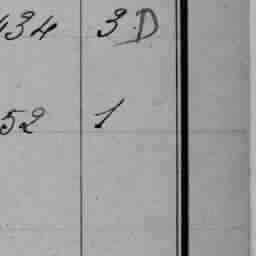 434 3 D
52 1